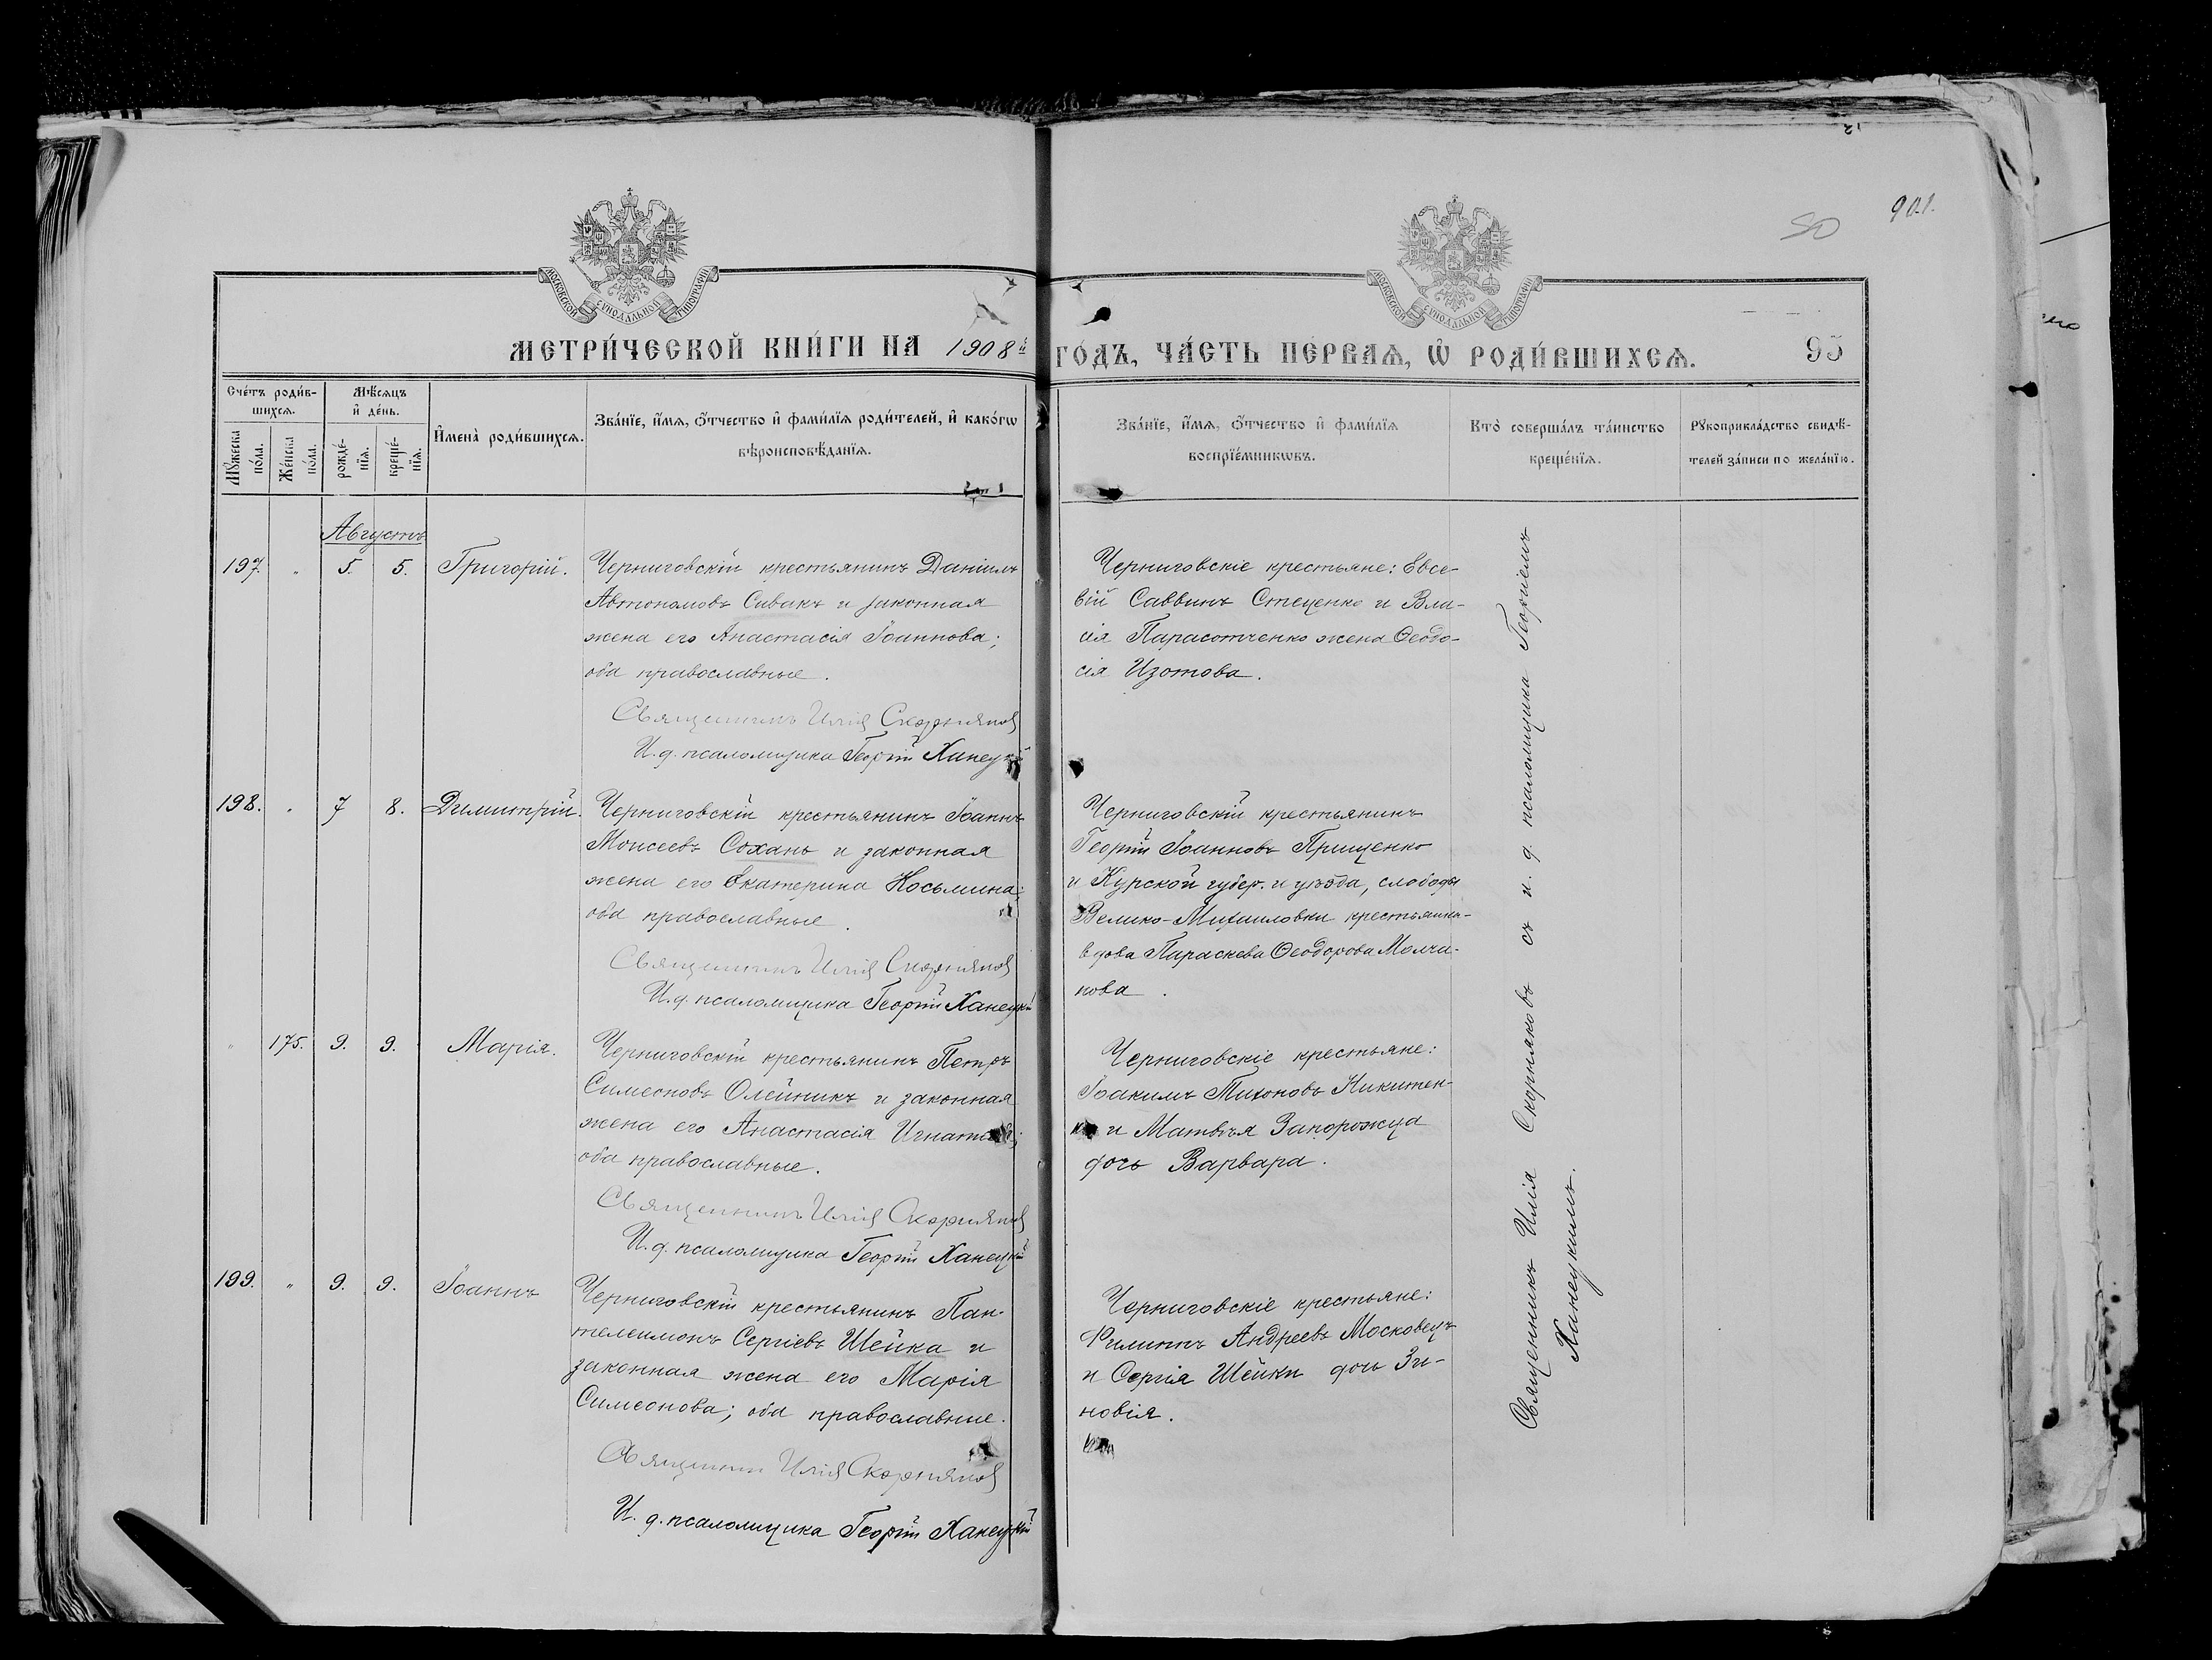 90.1.
50
МОСКОВСКОЙ СѴНОДАЛЬНОЙ ТИПОГРАФІИ
МОСКОВСКОЙ СѴНОДАЛЬНОЙ ТИПОГРАФІИ
МЕТРИ́ЧЕСКОЙ КНИ́ГИ НА 1908й ГО́ДЪ, ЧА́СТЬ ПЕ́РВАѦ, Ѡ҆ РОДИ́ВШИХСѦ. 95
Сче́тъ роди́в-
шихсѧ.
Мѣ́сѧцъ
и҆ де́нь.
Мꙋ́жеска
по́ла.
Же́нска
по́ла.
рожде́-
нїѧ.
креще́-
нїѧ.
И҆мена̀ роди́вшихсѧ.
Зва́нїе, и҆́мѧ, ѻ҆́тчество и҆ фами́лїѧ роди́телей, и҆ како́гѡ
вѣроисповѣ́данїѧ.
Зва́нїе, и҆́мѧ, ѻ҆́тчество и҆ фами́лїѧ
воспрїе́мникѡвъ.
Кто̀ соверша́лъ та́инство
креще́нїѧ.
Рꙋкоприкла́дство свидѣ́-
телей за́писи по жела́нїю.
Августъ
197. " 5. 5. Григорій.
Черниговскій крестьянинъ Даніилъ
Автономовъ Сивакъ и законная
жена его Анастасія Іоаннова;
оба православные.
Священникъ Илія Скорняковъ
И. д. псаломщика Георгій Ханецкій
Черниговскіе крестьяне: Евсе-
вій Саввинъ Стеценко и Вла-
сія Парасотченко жена Ѳеодо-
сія Изотова.
198. " 7 8. Димитрій.
Черниговскій крестьянинъ Іоаннъ
Моисеевъ Сохань и законная
жена его Екатерина Косьмина;
оба православные.
Священникъ Илія Скорняковъ
И. д. псаломщика Георгій Ханецкій
Черниговскій крестьянинъ
Георгій Іоанновъ Прищенко
и Курской губер. и уѣзда, слободы
Велико-Михаиловки крестьянка-
вдова Параскева Ѳеодорова Молча-
нова.
" 175. 9. 9. Марія.
Черниговскій крестьянинъ Петръ
Симеоновъ Олейникъ и законная
жена его Анастасія Игнатова;
оба православные.
Священникъ Илія Скорняковъ
И. д. псаломщика Георгій Ханецкій
Черниговскіе крестьяне:
Іоакимъ Тихоновъ Никитен-
ко и Матвѣя Запорожца
дочь Варвара.
199. " 9. 9. Іоаннъ
Черниговскій крестьянинъ Пан-
телеимонъ Сергіевъ Шейка и
законная жена его Марія
Симеонова; оба православные.
Священникъ Илія Скорняковъ
И. д. псаломщика Георгій Ханецкій
Черниговскіе крестьяне:
Филиппъ Андреевъ Московецъ
и Сергія Шейки дочь Зи-
новія.
Священникъ Илія Скорняковъ съ и. д. псаломщика Георгіемъ
Ханецкимъ.